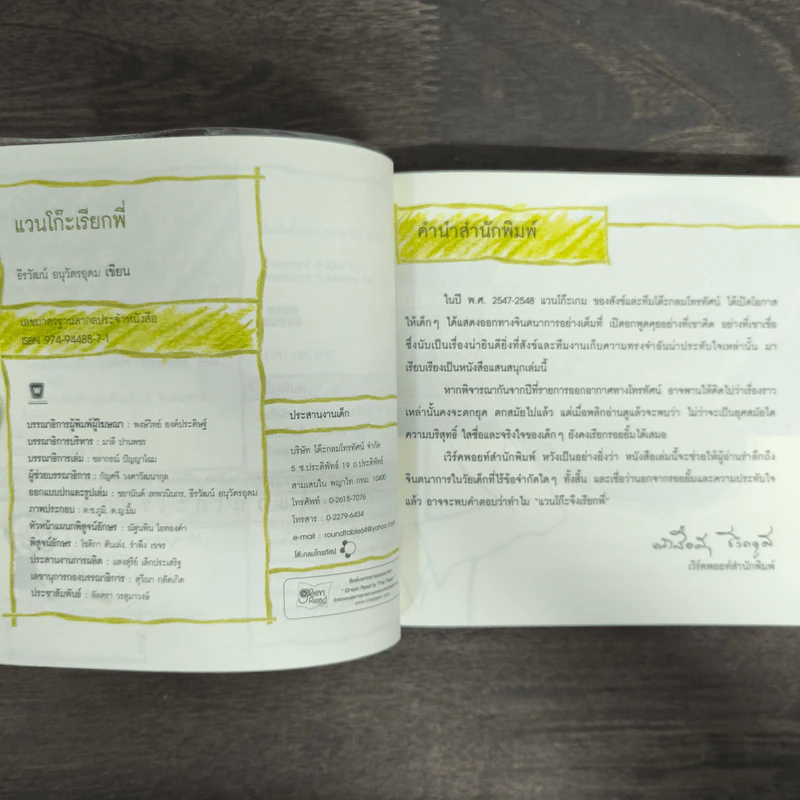 แวนโก๊ะเรียกพี่
ธีรวัฒน์ อนุวัตรอุดม เขียน
เลขมาตรฐานสากลประจำหนังสือ
ISBN 974-94485-7-1
W
บรรณาธิการผู้พิมพ์ผู้โฆษณา : พงษ์วิทย์ ยงค์ประดิษฐ์
บรรณาธิการบริหาร : มาลี ปานพชร
บรรณาธิการเล่ม : ชลากรณ์ ปัญญาโฉม
ผู้ช่วยบรรณาธิการ : กัญศจี วงศาวัฒนากุล
ออกแบบปกและรูปเล่ม : ชยานันต์ เทพวนินกร, ธีรวัฒน์ อนุวัตรอุดม
ภาพประกอบ : ด.ช.ภูมิ, ด.ญ.มิ้ม
หัวหน้าแผนกพิสูจน์อักษร : ณัฐนพิน โอทองคำ
พิสูจน์อักษร : โชติกา ตันเล่ง, รำพึง เขจร
ประสานงานการผลิต : แสงสุรีย์ เด็กประเสริฐ
เลขานุการกองบรรณาธิการ : สุวีณา กลัดเกิด
ประชาสัมพันธ์ : ลัดดา วรสุมาวงษ์
ประสานงานเด็ก
บริษัท โต๊ะกลมโทรทัศน์ จำกัด
5 ซ.ประดิพัทธ์ 19 ถ.ประดิพัทธ์
สามเสนใน พญาไท กทม. 10400
โทรศัพท์ : 0-2615-7076
โทรสาร : 0-2279-6434
e-mail : roundtable64@yahoo.com
โต๊ะกลมโทรทัศน์
Green Read
คำนำสำนักพิมพ์
ในปี พ.ศ. 2547-2548 แวนโก๊ะเกม ของสังข์และทีมโต๊ะกลมโทรทัศน์ ได้เปิดโอกาส
ให้เด็กๆ ได้แสดงออกทางจินตนาการอย่างเต็มที่ เปิดอกพูดคุยอย่างที่เขาคิด อย่างที่เขาเชื่อ
ซึ่งนับเป็นเรื่องน่ายินดียิ่งที่สังข์และทีมงานเก็บความทรงจำอันน่าประทับใจเหล่านั้น มา
เรียบเรียงเป็นหนังสือแสนสนุกเล่มนี้
หากพิจารณากันจากปีที่รายการออกอากาศทางโทรทัศน์ อาจพานให้คิดไปว่าเรื่องราว
เหล่านั้นคงจะตกยุค ตกสมัยไปแล้ว แต่เมื่อพลิกอ่านดูแล้วจะพบว่า ไม่ว่าจะเป็นยุคสมัยใด
ความบริสุทธิ์ ใสซื่อและจริงใจของเด็กๆ ยังคงเรียกรอยยิ้มได้เสมอ
เวิร์คพอยท์สำนักพิมพ์ หวังเป็นอย่างยิ่งว่า หนังสือเล่มนี้จะช่วยให้ผู้อ่านรำลึกถึง
จินตนาการในวัยเด็กที่ไร้ข้อจำกัดใดๆ ทั้งสิ้น และเชื่อว่านอกจากรอยยิ้มและความประทับใจ
แล้ว อาจจะพบคำตอบว่าทำไม "แวนโก๊ะจึงเรียกพี่"
เวิร์คพอยท์สำนักพิมพ์